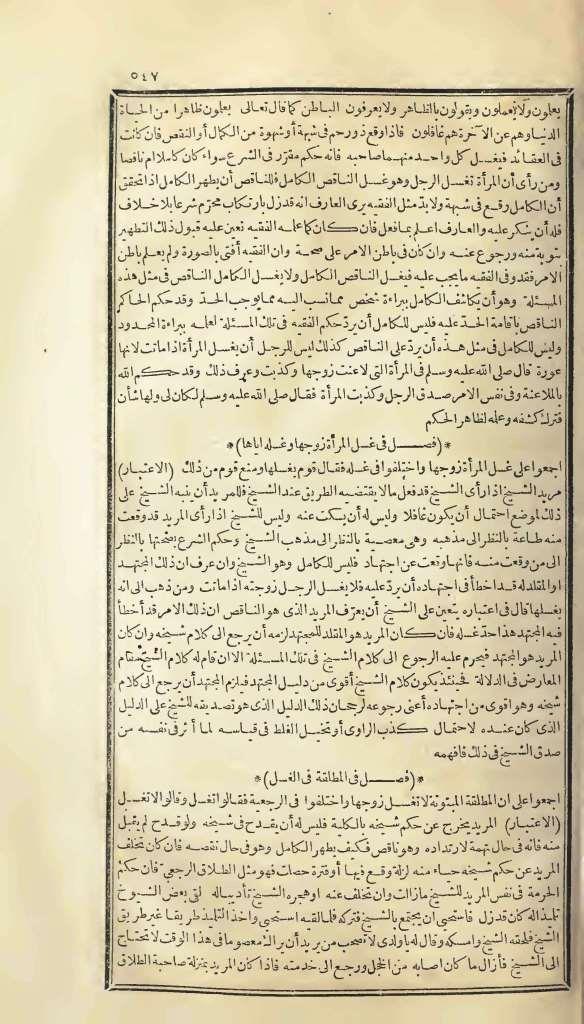 ٥٤٧
يعلون ولا يعملون ويقولون بالظاهر ولا يعرفون الباطن كما قال تعالى يعلمون ظاهرا من الحياة
الدنيا وهم عن الآخرة هم غافلون فاذا وقع ذو رحم فى شبهة أو شهوة من الكمال أو النقص فان كانت
فى العقائد فيغسل كل واحد منهما صاحبه فانه حكم مقرّر فى الشرع سواء كان كاملا ام ناقصا
ومن رأى أن المرأة تغسل الرجل وهو غسل الناقص الكامل فللناقص أن يطهر الكامل اذا تحقق
أن الكامل وقع فى شبهة ولا بدّ مثل الفقيه يرى العارف انه قد زل بارتكاب محرّم شرعا بلا خلاف
فله أن ينكر عليه والعارف اعلم بما فعل فان كان كما علمه الفقيه تعين عليه قبول ذلك التطهير
بتوبة منه ورجوع عنه وان كان فى باطن الامر على صحة وان الفقيه أفتى بالصورة ولم يعلم باطن
الامر فقد وفى الفقيه ما يجب عليه فيغسل الناقص الكامل ولا يغسل الكامل الناقص فى مثل هذه
المسئلة وهو أن يكاشف الكامل ببراءة شخص مما نسب اليه مما يوجب الحدّ وقد حكم الحاكم
الناقص باقامة الحدّ عليه فليس للكامل أن يردّ حكم الفقيه فى تلك المسئلة لعلمه ببراءة المحدود
وليس للكامل فى مثل هذه أن يردّ على الناقص كذلك ليس للرجل أن يغسل المرأة اذا ماتت لانها
عورة قال صلى الله عليه وسلم فى المرأة التى لاعنت زوجها وكذبت وعرف ذلك وقد حكم الله
بالملاعنة وفى نفس الامر صدق الرجل وكذبت المرأة فقال صلى الله عليه وسلم لكان لى ولها شأن
فترك كشفه وعلمه لظاهر الحكم
*(فصل فى غسل المرأة زوجها وغسله اياها)*
اجمعوا على غسل المرأة زوجها واختلفوا فى غسله فقال قوم يغسلها ومنع قوم من ذلك (الاعتبار)
مريد الشيخ اذا رأى الشيخ قد فعل ما لا يقتضيه الطريق عند الشيخ فللمريد أن ينبه الشيخ على
ذلك لموضع احتمال أن يكون غافلا وليس له أن يسكت عنه وليس للشيخ اذا رأى المريد قد وقعت
منه طاعة بالنظر الى مذهبه وهى معصية بالنظر الى مذهب الشيخ وحكم الشرع بصحتها بالنظر
الى من وقعت منه فانها وقعت عن اجتهاد فليس للكامل وهو الشيخ وان عرف ان ذلك المجتهد
او المقلد له قد اخطأ فى اجتهاده أن يردّ عليه فلا يغسل الرجل زوجته اذا ماتت ومن ذهب الى انه
يغسلها قال فى اعتباره يتعين على الشيخ أن يعرّف المريد الذى هو الناقص ان ذلك الامر قد أخطأ
فيه المجتهد هذا حدّ غسله فان كان المريد هو المقلد للمجتهد لزمه أن يرجع الى كلام شيخه وان كان
المريد هو المجتهد فيحرم عليه الرجوع الى كلام الشيخ فى تلك المسئلة الا ان قام له كلام الشيخ مقام
المعارض فى الدلالة فحينئذ يكون كلام الشيخ أقوى من دليل المجتهد فيلزم المجتهد أن يرجع الى كلام
شيخه وهو اقوى من اجتهاده أعنى رجوعه لرجحان ذلك الدليل الذى هو تصديقه للشيخ على الدليل
الذى كان عنده لاحتمال كذب الراوى أو تخيل الغلط فى قياسه لما أثر فى نفسه من
صدق الشيخ فى ذلك فافهمه
*(فصل فى المطلقة فى الغسل)*
اجمعوا على ان المطلقة المبتوتة لا تغسل زوجها واختلفوا فى الرجعية فقالوا تغسل وقالوا لا تغسل
(الاعتبار) المريد يخرج عن حكم شيخه بالكلية فليس له أن يقدح فى شيخه ولو قدح لم يقبل
منه فانه فى حال تهمة لارتداده وهو ناقص فكيف يطهر الكامل وهو فى حال نقصه فان كان تخلف
المريد عن حكم شيخه حياء منه لزلة وقع فيها أو فترة حصلت فهو مثل الطلاق الرجعى فان حكم
الحرمة فى نفس المريد للشيخ ما زالت وان تخلف عنه او هجره الشيخ تأديبا له لقى بعض الشيوخ
تلميذا له كان قد زل فاستحيى ان يجتمع بالشيخ فتركه فلما لقيه استحيى واخذ التلميذ طريقا غير طريق
الشيخ فلحقه الشيخ وامسكه وقال له يا ولدى لا تصحب من يريد أن يراك معصوما فى هذا الوقت لا تحتاج
الى الشيخ فأزال ما كان اصابه من الخجل ورجع الى خدمته فاذا كان المريد بمنزلة صاحبة الطلاق